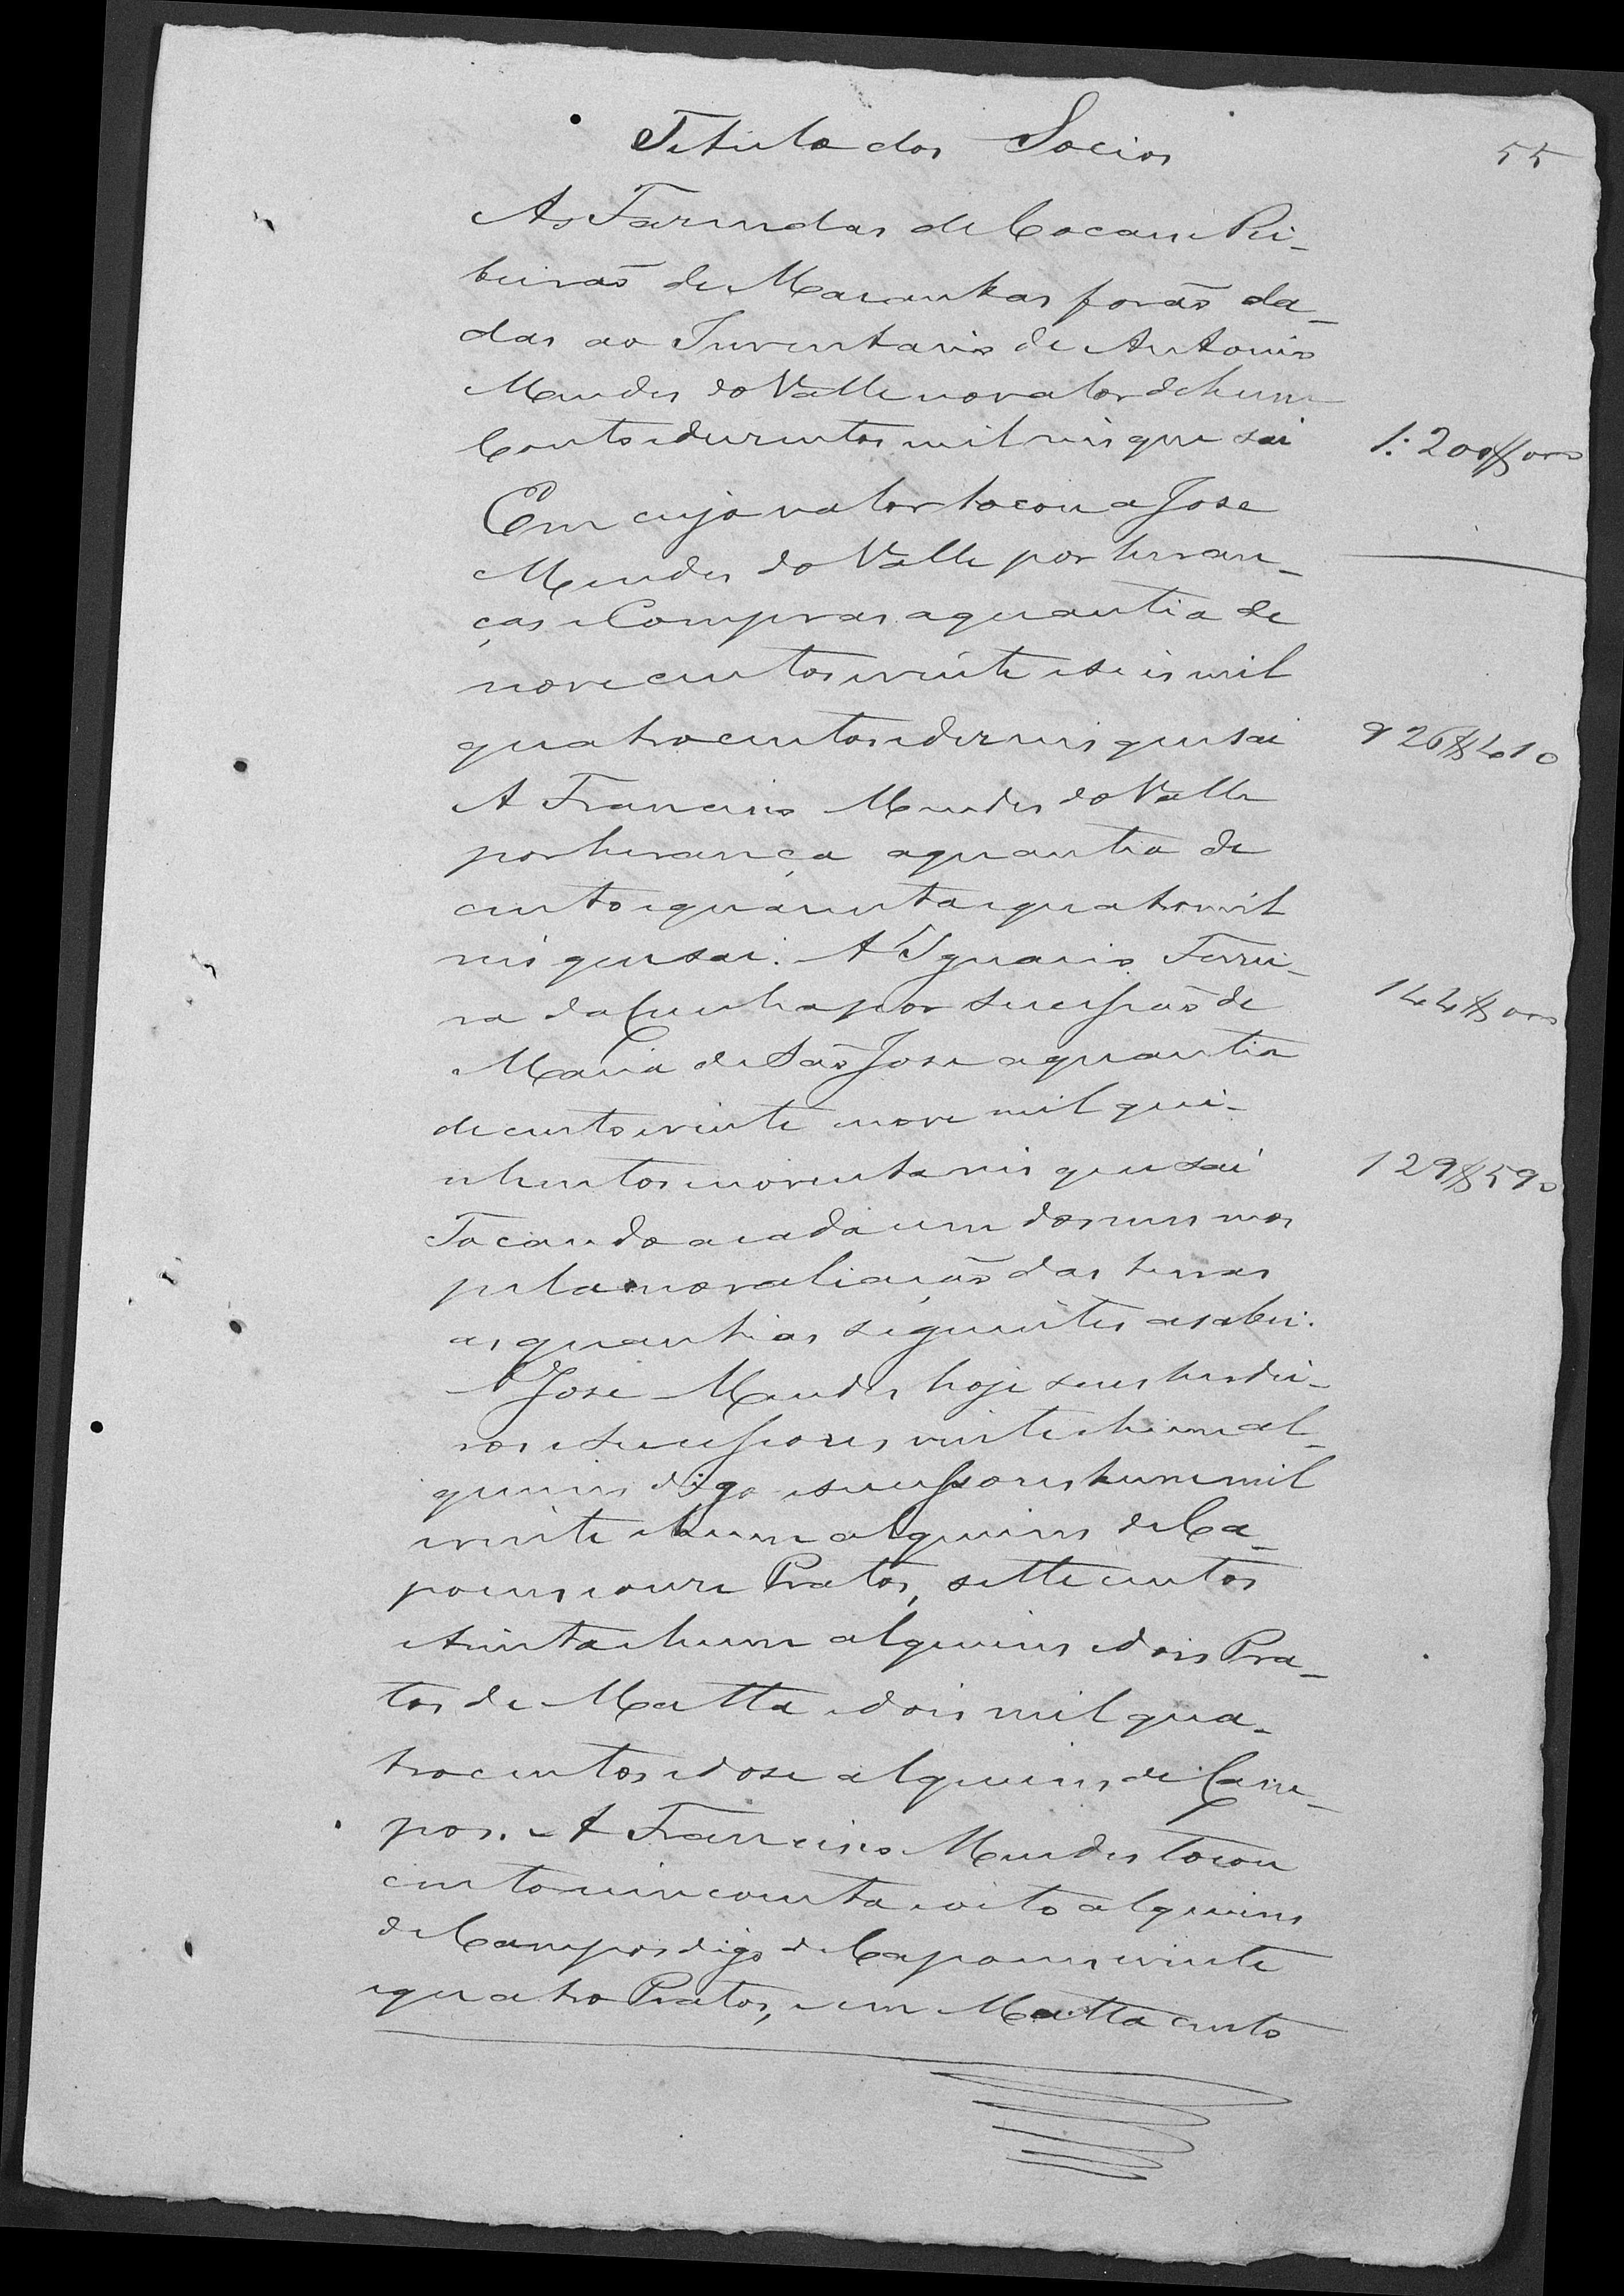 Titulo dos Socios
55
As Fazendas de Cocaes e Ri-
beirão de Macaubas forão da-
das ao Inventario de Antonio
Mendes do Valle no valor de hum
Conto e duzentos mil reis que sai 1:200$000
Em cujo valor tocou a Jose
Mendes do Valle por heran-
ças e Compras a quantia de
nove centos e vinte e seis mil
quatrocentos e dez reis que sai 926$410
A Francisco Mendes do Valle
por herança a quantia de
cento e quarenta e quatro mil
reis que sai. A Ignacio Ferrei- 144$000
ra da Cunha por sucessão de
Maria de São Jose a quantia
de cento e vinte e nove mil qui-
nhentos e noventa reis que sai 129$590
Tocando a cada um dos mesmos
pela nova aliação das terras
as quantias seguintes a saber.
A Jose Mendes hoje seus herdei-
ros e sucessores, vinte e hum al-
queires digo e sucessores hum mil
e vinte e hum alqueires de Ca-
poens e onze Pratos, sette centos
e trinta e hum alqueires e dois Pra-
tos de Matta e dois mil qua-
trocentos e dose alqueires de Cam-
pos. A Francisco Mendes tocou
cento e cincoenta e oito alqueires
de Campos digo de Capoens e vinte
e quatro Pratos, e em Matta cento